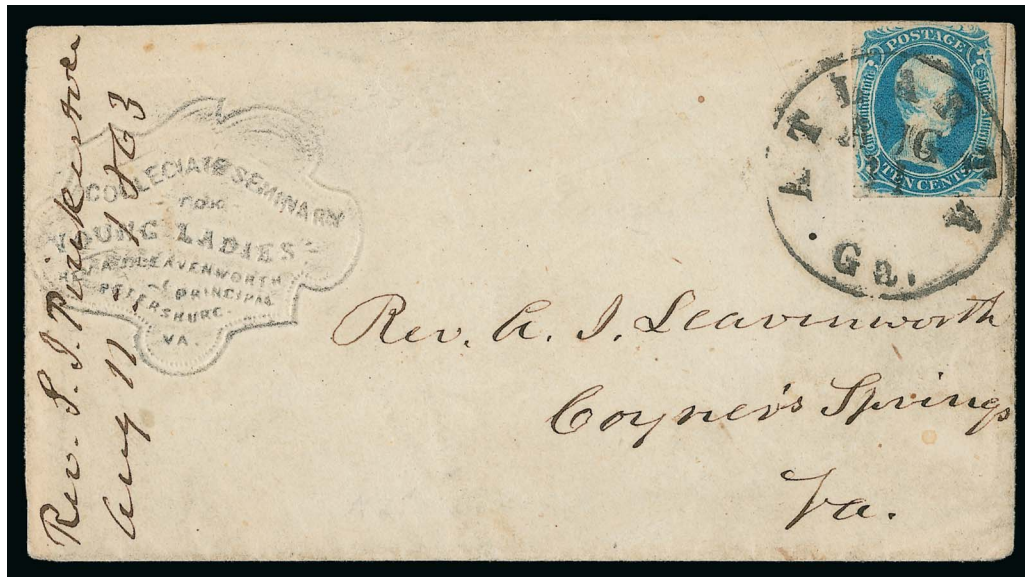 Rev. S. J. Pinkerton
Aug 17 1863
COLLEGIATE SEMINARY
FOR
YOUNG LADIES
REV. A.J. LEAVENWORTH
PRINCIPAL
PETERSBURG.
VA.
POSTAGE
TEN CENTS
ATLANTA
AUG
Ga.
Rev. A. J. Leavenworth
Coyner's Springs
Va.